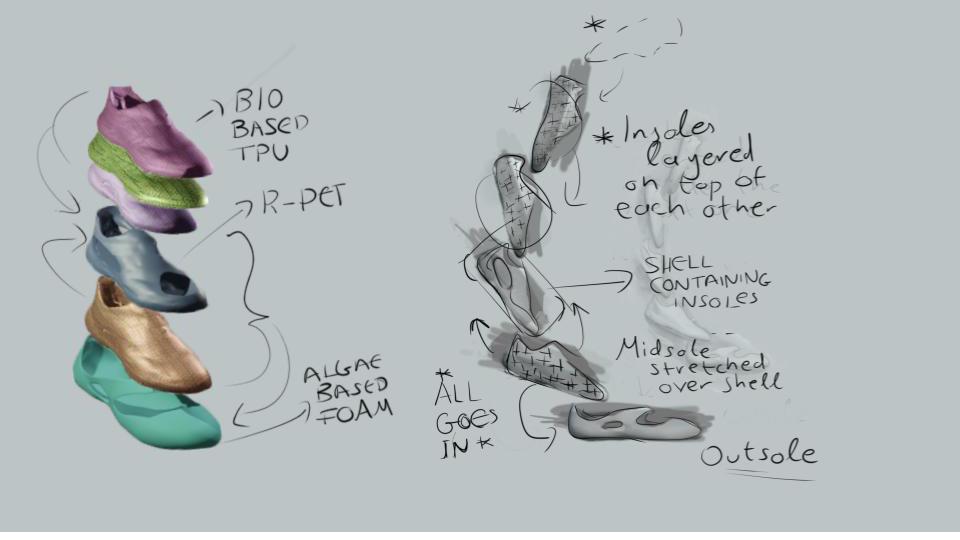 BIO
BASED
TPU
R-PET
ALGAE
BASED
FOAM
* Insoles
layered
on top of
each other
SHELL
CONTAINING
INSOLES
Midsole
stretched
over shell
*
ALL
GOES
IN *
Outsole